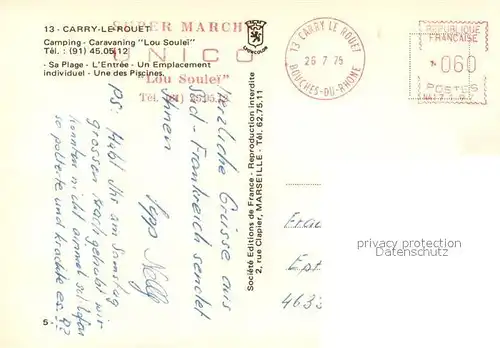 13 - CARRY-LE-ROUET
Camping - Caravaning "Lou Souleï"
Tél. : (91) 45.05.12
- Sa Plage - L'Entrée - Un Emplacement
individuel - Une des Piscines.
SUPER MARCHE
UNICO
"Lou Souleï"
Tél. (91)
LYONCOLOR
13 CARRY LE ROUET
26 7 75
BOUCHES-DU-RHÔNE
RÉPUBLIQUE
FRANÇAISE
060
POSTES
Société Editions de France - Reproduction interdite
2, rue Clapier, MARSEILLE - Tél. 62.75.11
Herzliche Grüsse aus
Süd-Frankreich sendet
Ihnen
Sepp Nolly
PS: Habt Ihr am Samstag
grossen Krach gehabt wir
konnten nicht einmal schlafen
so polterte und krachte es.
Frau
463
privacy protection
5